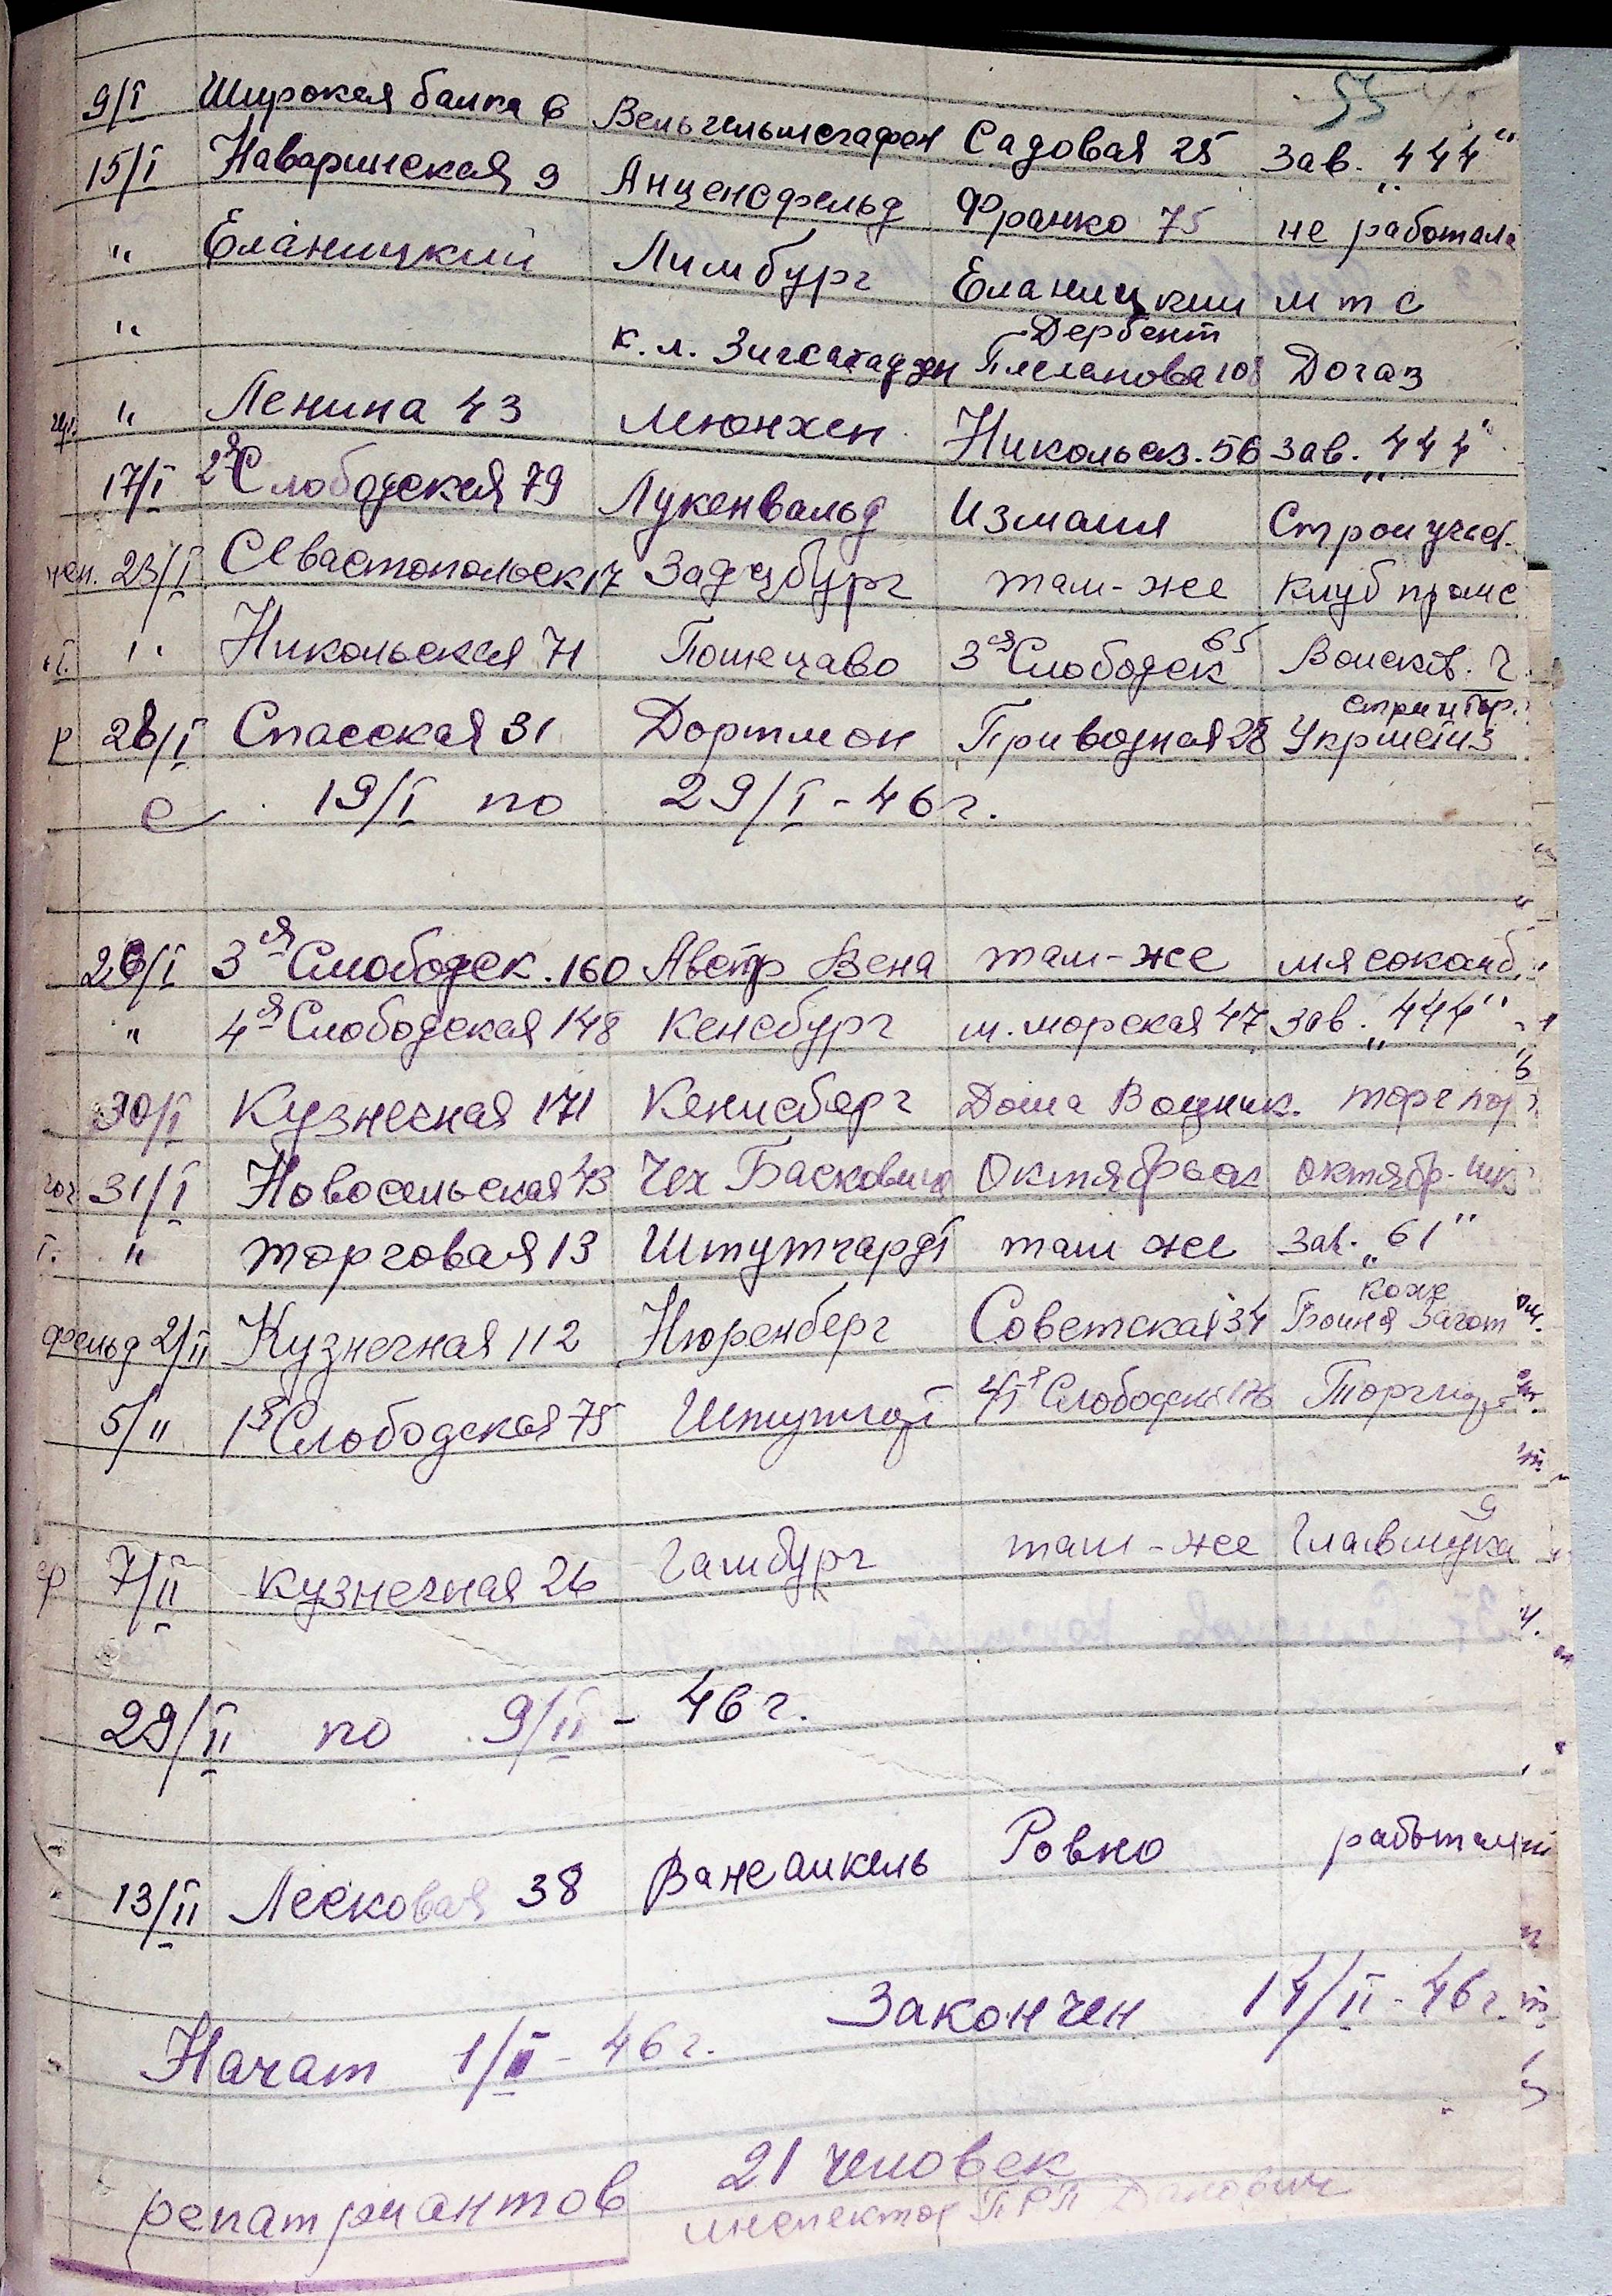 55
9/I Широкая балка 6 Вельгельмсгафен Садовая 25 зав. „444"
15/I Наваринская 9 Анценсфельд Франко 75 не работала
" Еланицкий Лимбург Еланицкий м т с
" к.л. Дербент Плеханова 108 Догаз
" Ленина 43 Мюнхен Никольск. 56 зав. „444"
17/I 2я Слободская 79 Лукенвальд Измаил Строй
23/I Севастопольск 17 Задцбург там-же Клуб
" Никольская 71 3ая Слободск 65 Воиск. ч
28/I Спасская 31 Дортмон Приводная 28
с 19/I по 29/I-46 г.
26/I 3ая Слободск. 160 Австр Вена там-же мясокомб
" 4ая Слободская 148 Кенсбург м. морская 47 зав. „444"
30/I Кузнечная 171 Кенисберг Дома Водник. торг
31/I Новосельская 43 Чех Октябрьск октябр.
" торговая 13 Штутгардт там же Зав. „61"
фельд 2/II Кузнечная 112 Нюренберг Советская 34 Бойня коже загот
5/" 1я Слободская 75 Слободск 176
7/II кузнечная 26 Гамбург там-же Главмука
29/II по 9/II-46 г.
13/II Лесковая 38 Ванеаикель Ровно
Начат 1/II-46 г. Закончен 14/II-46 г.
репатриантов 21 человек
инспектор ПРП